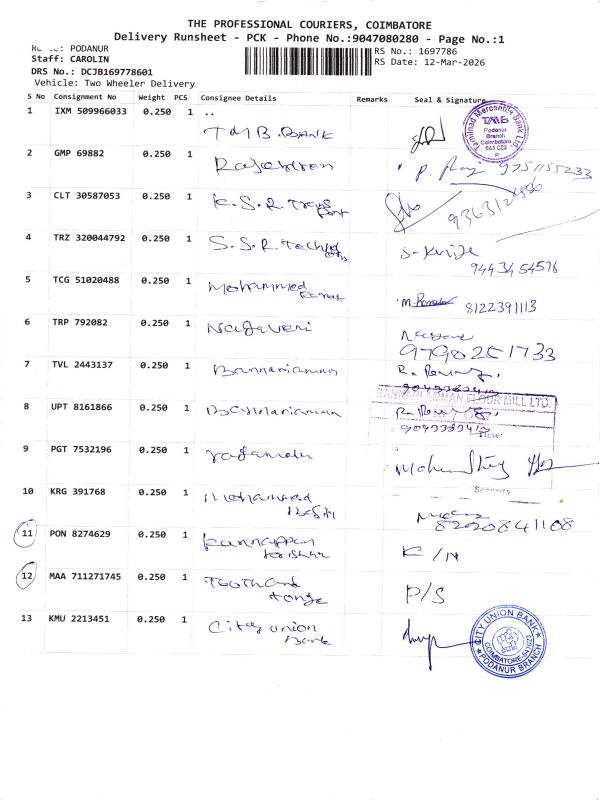 THE PROFESSIONAL COURIERS, COIMBATORE
Delivery Runsheet - PCK - Phone No.:9047080280 - Page No.:1
PODANUR
RS No.: 1697786
Staff: CAROLIN
RS Date: 12-Mar-2026
DRS No.: DCJB169778601
Vehicle: Two Wheeler Delivery
S No Consignment No Weight PCS Consignee Details Remarks Seal & Signature
1 IXM 509966033 0.250 1 ..
TMB. BANK
Tamilnad Mercantile Bank Ltd
TMB
Podanur
Branch
Coimbatore
641 023
2 GMP 69882 0.250 1
9751155233
3 CLT 30587053 0.250 1 K.S.R. Trans
port
4 TRZ 320044792 0.250 1 S.S.R. Techno
9443454576
5 TCG 51020488 0.250 1 Mohammed
8122391113
6 TRP 792082 0.250 1 Nagaveni
9790251733
7 TVL 2443137 0.250 1 Bannariamman
8 UPT 8161866 0.250 1 Bannariamman
BANNARI AMMAN FLOUR MILL LTD.
Time
9 PGT 7532196 0.250 1
Security
10 KRG 391768 0.250 1 Mohammed
8220841108
11 PON 8274629 0.250 1 Kannappan
K/N
12 MAA 711271745 0.250 1 Tooth and
P/S
13 KMU 2213451 0.250 1 City Union
Bank
CITY UNION BANK
COIMBATORE-641023
PODANUR BRANCH